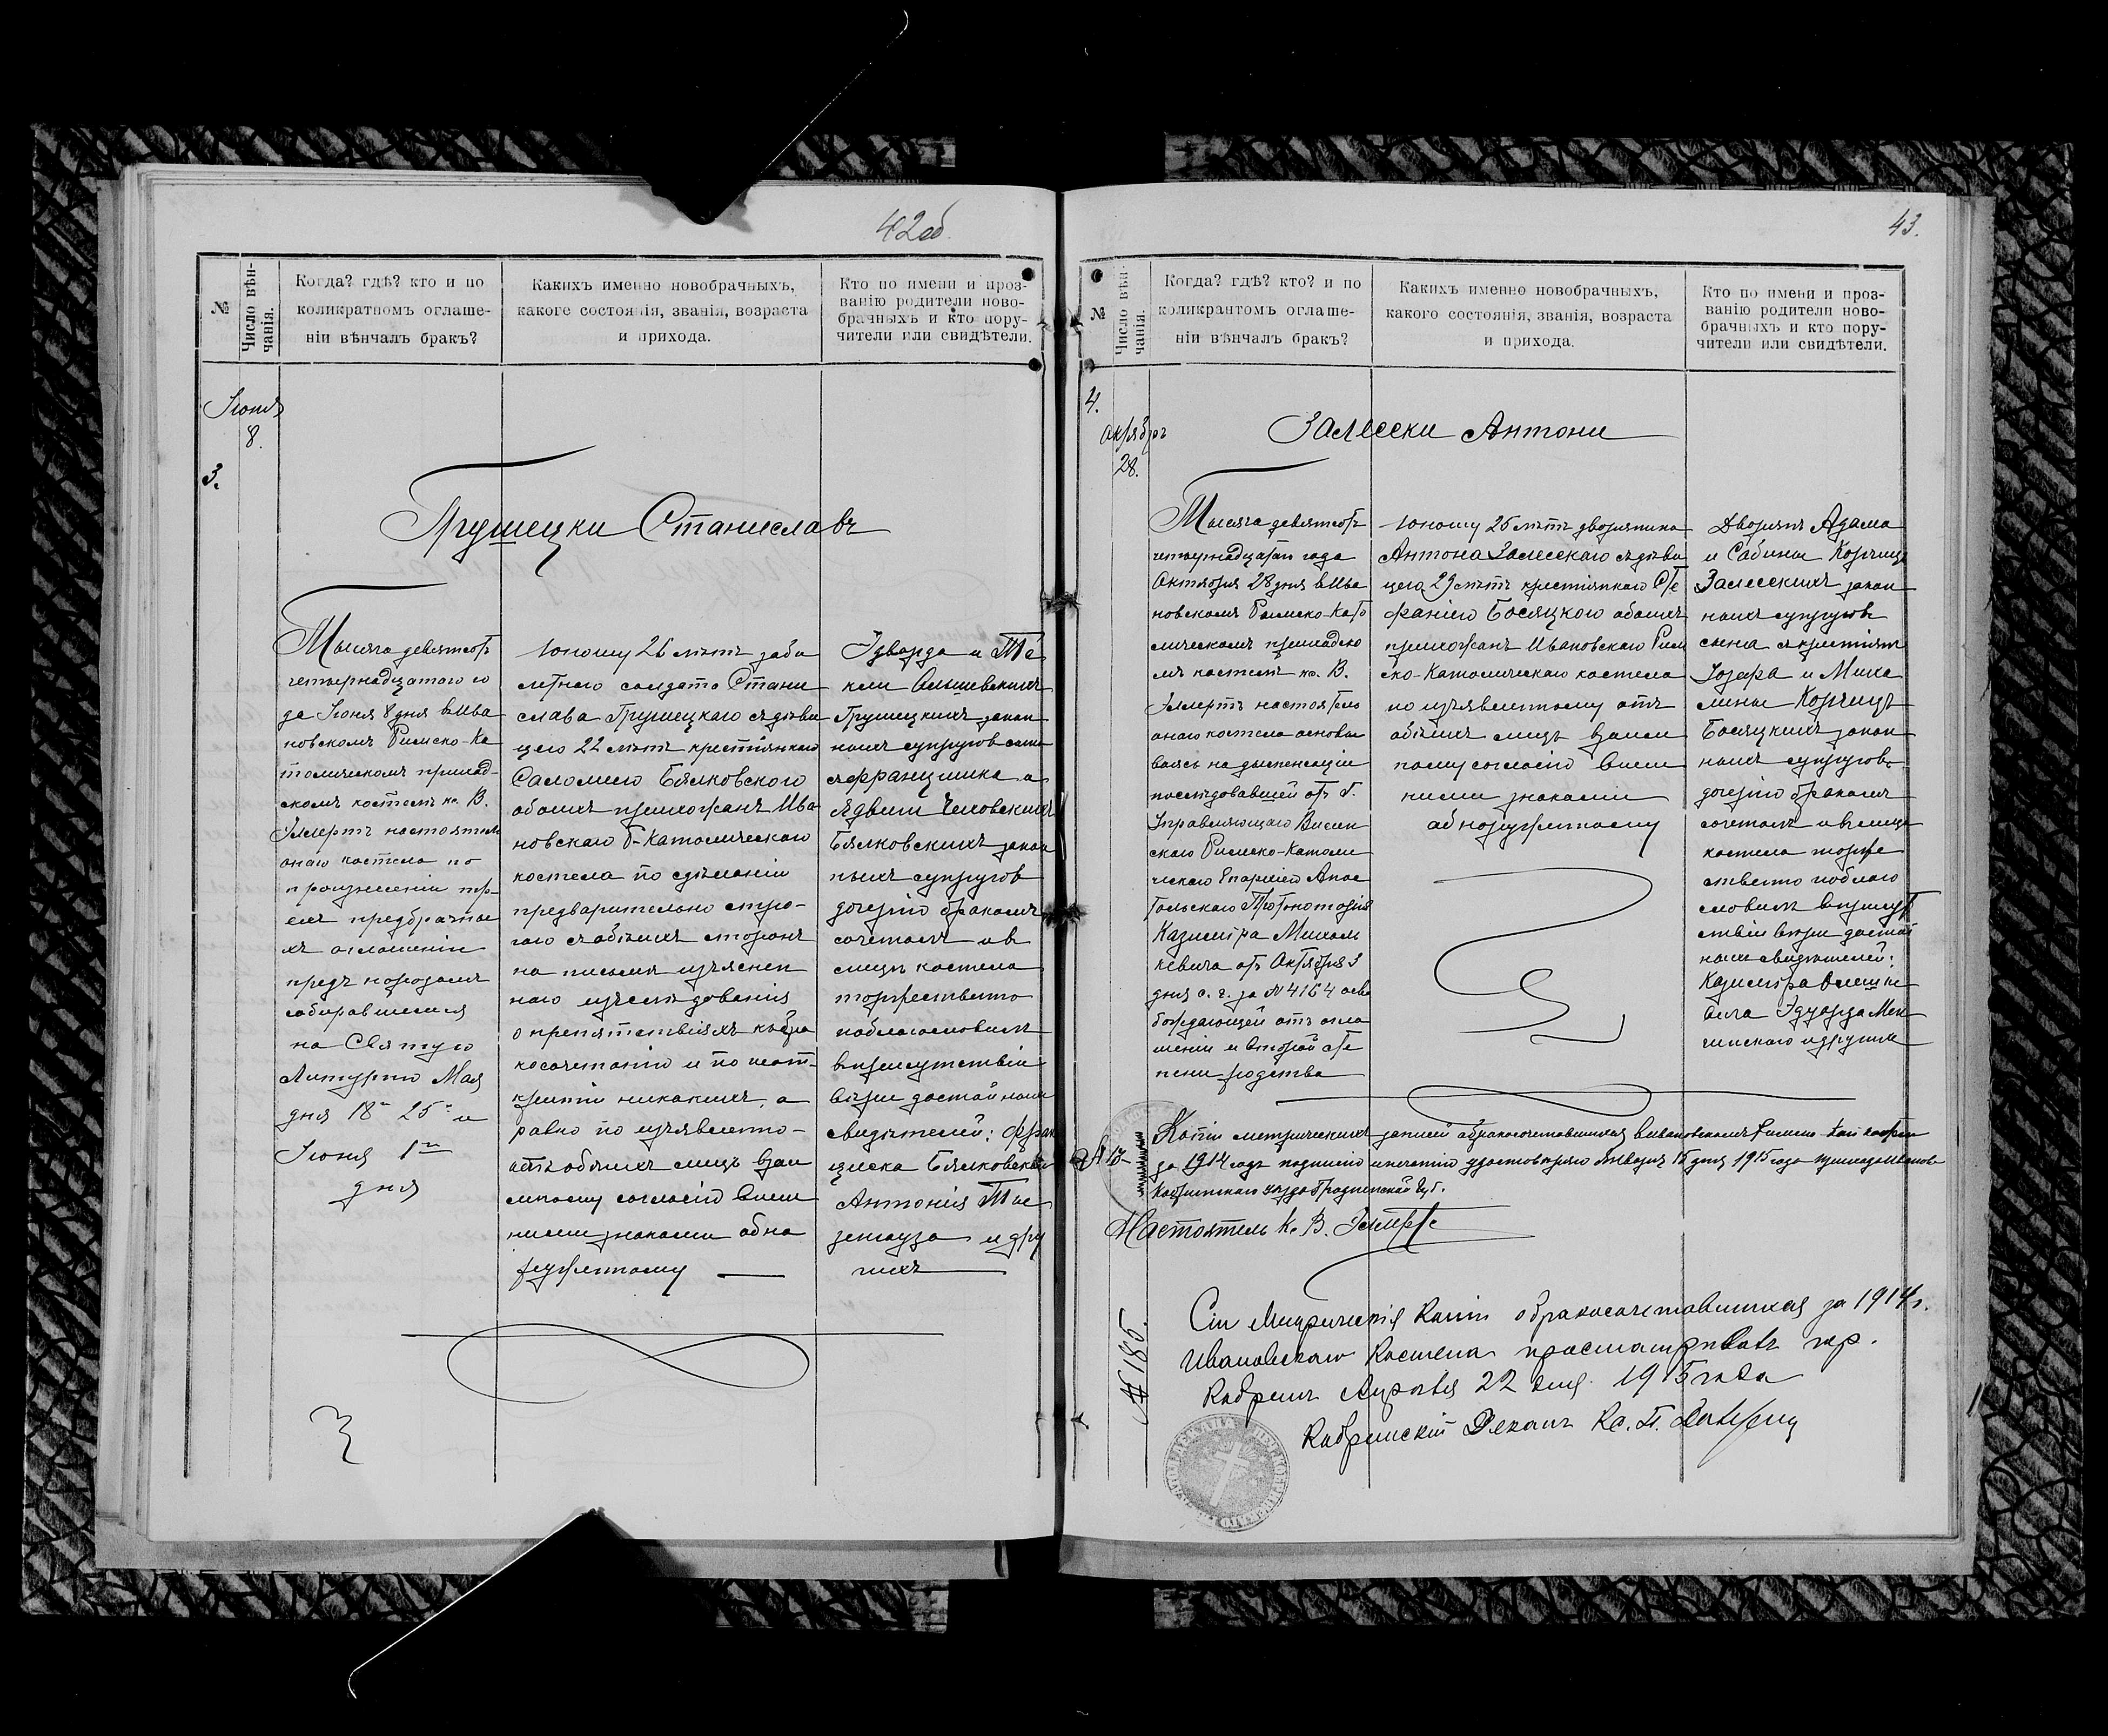 42об.
№
Число вѣн-
чанія.
Когда? гдѣ? кто и по
коликратномъ оглаше-
ніи вѣнчалъ бракъ?
Какихъ именно новобрачныхъ,
какоге состоянія, званія, возраста
и прихода.
Кто по имени и проз-
ванію родители ново-
брачныхъ и кто пору-
чители или свидѣтели.
Іюня
8.
3.
Грушецки Станиславъ
Тысяча девятсотъ
четырнадцатого го
да Іюня 8 дня въ Ива
новскомъ Римско-Ка
толическомъ приход-
скомъ костелѣ кс. В.
Эллертъ настоятель
онаго костела по
произнесеніи тр-
ехъ предбрачны
хъ оглашеніи
предъ народомъ
собиравшемся
на Святую
Литургію Мая
дня 18го 25го и
Іюня 1го
дня
Юношу 26 лѣтъ запа
снаго солдата Стани
слава Грушецкаго съ дѣви
цею 22 лѣтъ крестьянкою
Саломею Бялковского
обоихъ прихожанъ Ива
новскаго Р-Католическаго
костела по сдѣланіи
предварительно стро-
гаго съ обѣихъ сторонъ
на письмѣ изъяснен
наго изслѣдованія
о препятствіяхъ къ бра
косочетанію и по неот-
крытіи никакихъ, а
равно по изъявленно-
отъ обѣихъ лицъ взаи
мному согласію внеш
ними знаками обна
руженному
Эдварда и Те
кли Ольшевскихъ
Грушецкихъ закон
ныхъ супруговъ сына
съ францишка и
Ядвиги Чеховскихъ
Бялковскихъ закон
ныхъ супруговъ
дочерію бракомъ
сочеталъ и въ
лицѣ костела
торжественно
поблагословилъ
въ присутствіи
вѣры достойныхъ
свидѣтелей: Фран
циска Бялковскаго
Антонія Тис
зенгауза и дру
гихъ
43.
№
Число вѣн-
чанія.
Когда? гдѣ? кто? и по
коликрантомъ оглаше-
ніи вѣнчалъ бракъ?
Какихъ именно новобрачныхъ,
какого состоянія, званія, возраста
и прихода.
Кто по имени и проз-
ванію родители ново-
брачныхъ и кто пору-
чители или свидѣтели.
4.
Октябрь
28.
Залески Антони
Тысяча девятсотъ
четырнадцатаго года
Октября 28 дня въ Ива
новскомъ Римско-Като
лическомъ приходско
мъ костелѣ кс. В.
Эллертъ настоятель
онаго костела основы
ваясь на диспенсаціи
послѣдовавшей отъ Г.
Управляющаго Вилен
скою Римско-Католи
ческою Епархіею Апос
тольскаго Протонотарія
Казиміра Михаль
кевича отъ Октября 3
дня с. г. за № 4164 осво
бождающей отъ огла
шеніи и второй сте
пени родства
Юношу 25 лѣтъ дворянина
Антона Залескаго съ дѣви
цею 29 лѣтъ крестьянкою Сте
фаніею Босяцкою обоихъ
прихожанъ Ивановскаго Рим
ско-Католическаго костела
по изъявленному отъ
обѣихъ лицъ взаим
ному согласію внеш
ними знаками
обнаруженному
Дворянъ Адама
и Сабины Корчицъ
Залескихъ закон
ныхъ супруговъ
сына съ крестьянъ
Іозефа и Миха
лины Корчицъ
Босяцкихъ закон
ныхъ супруговъ
дочерію бракомъ
сочеталъ и въ лицѣ
костела торже
ственно поблаго
словилъ въ присут
ствіи вѣры достой
ныхъ свидѣтелей:
Казиміра
Эдуарда Мен
жинскаго и другихъ
№ 13
Копію метрическихъ записей о бракосочетавшихся въ Ивановскомъ Римско-Кат костелѣ
за 1914 годъ подписью и печатью удостовѣряю Января 15 дня 1915 года
Кобринскаго уѣзда Гродненской Губ.
Настоятель Кс. В. Эллертъ
№ 185.
Сіи Метрическія Копіи о бракосочетавшихся за 1914 г.
Ивановскаго Костела просматривалъ гор.
Кобринъ 22 дня 1915 года
Кобринскій Деканъ Кс.